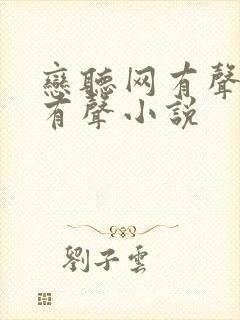 戀聽网有聲
有聲小説
劉子雲